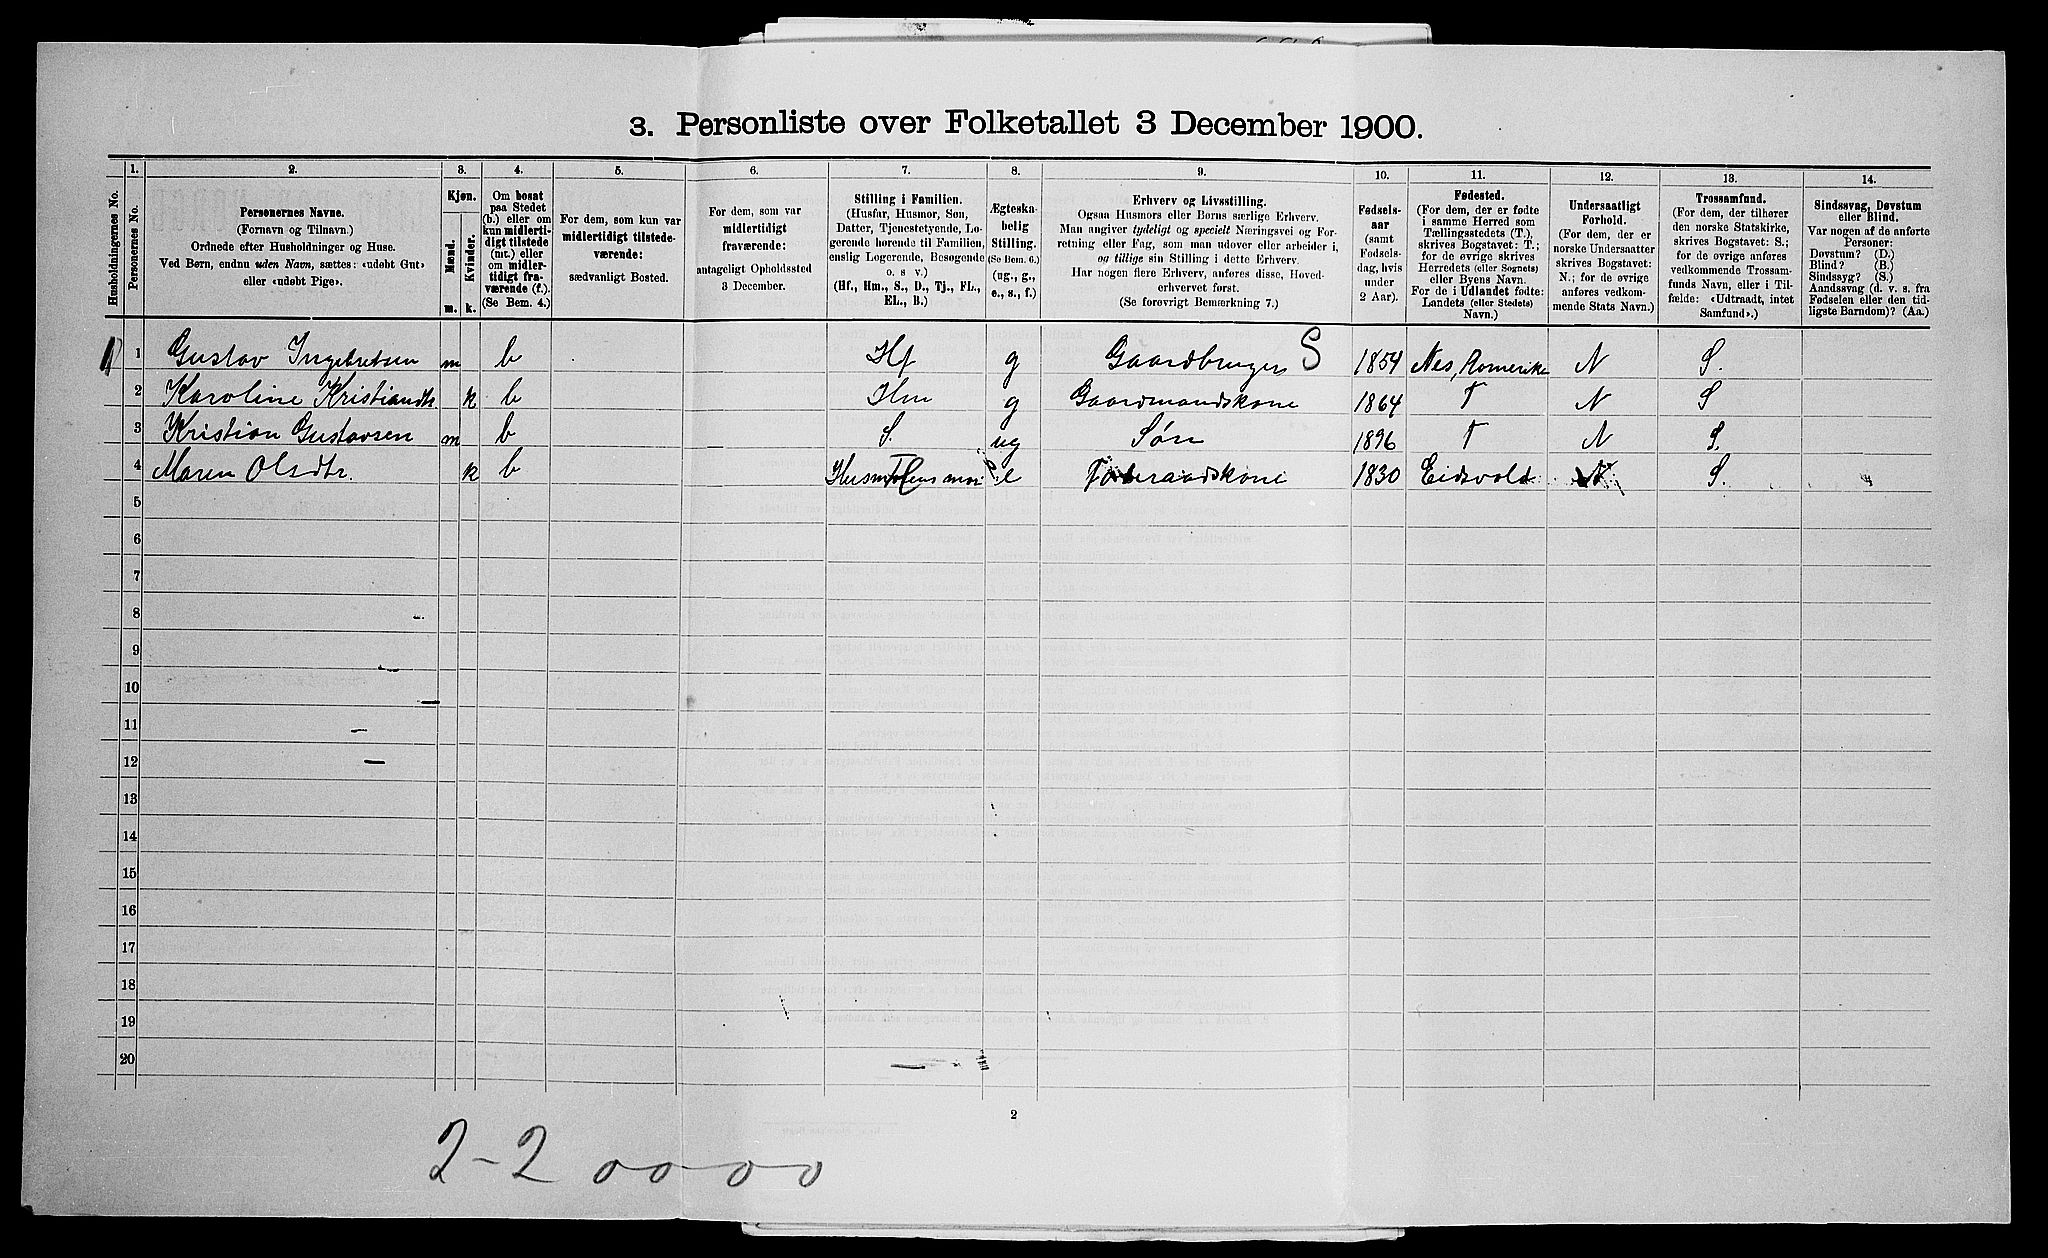 3. Personliste over Folketallet 3 December 1900.
1. 2. 3. 4. 5. 6. 7. 8. 9. 10. 11. 12. 13. 14.
Husholdningernes No.
Personernes No.
Personernes Navne.
(Fornavn og Tilnavn.)
Ordnede efter Husholdninger og Huse.
Ved Børn, endnu uden Navn, sættes: «udøbt Gut»
eller «udøbt Pige».
Kjøn.
Mænd.
Kvinder.
m. k.
Om bosat
paa Stedet
(b.) eller om
kun midler-
tidigt tilstede
(mt.) eller
om midler-
tidigt fra-
værende (f.).
(Se Bem. 4.)
For dem, som kun var
midlertidigt tilstede-
værende:
sædvanligt Bosted.
For dem, som var
midlertidigt
fraværende:
antageligt Opholdssted
3 December.
Stilling i Familien.
(Husfar, Husmor, Søn,
Datter, Tjenestetyende, Lo-
gerende hørende til Familien,
enslig Logerende, Besøgende
o. s v.)
(Hf., Hm., S., D., Tj., FL.,
EL., B.)
Ægteska-
belig
Stilling.
(Se Bem. 6.)
(ug., g.,
e., s., f.)
Erhverv og Livsstilling.
Ogsaa Husmors eller Børns særlige Erhverv.
Man angiver tydeligt og specielt Næringsvei og For-
retning eller Fag, som man udover eller arbeider i,
og tillige sin Stilling i dette Erhverv.
Har nogen flere Erhverv, anføres disse, Hoved-
erhvervet først.
(Se forøvrigt Bemærkning 7.)
Fødsels-
aar
(samt
Fødsels-
dag, hvis
under
2 Aar).
Fødested.
(For dem, der er fødte
i samme Herred som
Tællingsstedets (T.),
skrives Bogstavet: T.;
for de øvrige skrives
Herredets (eller Sognets)
eller Byens Navn.
For de i Udlandet fødte:
Landets (eller Stedets)
Navn.)
Undersaatligt
Forhold.
(For dem, der er
norske Undersaatter
skrives Bogstavet:
N.; for de øvrige
anføres vedkom-
mende Stats Navn.)
Trossamfund.
(For dem, der tilhører
den norske Statskirke,
skrives Bogstavet: S.;
for de øvrige anføres
vedkommende Trossam-
funds Navn, eller i Til-
fælde: «Udtraadt, intet
Samfund».)
Sindssvag, Døvstum
eller Blind.
Var nogen af de anførte
Personer:
Døvstum? (D.)
Blind? (B.)
Sindssyg? (S.)
Aandssvag (d. v. s. fra
Fødselen eller den tid-
ligste Barndom)? (Aa.)
1 Gustav Ingebretsen m b Hf g Gaardbruger S 1854 Nes, Romerike N S.
2 Karoline Kristiandtr. k b Hm g Gaardmandskone 1864 T N S
3 Kristian Gustavsen m b S. ug Søn 1896 T N S.
4 Maren Olsdtr. k b e Føderaadskone 1830 Eidsvold N S.
5
6
7
8
9
10
11
12
13
14
15
16
17
18
19
20
2
2-2 0000